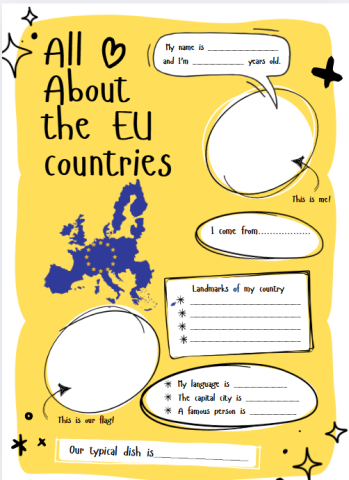 All
About
the EU
countries
My name is _______________
and I'm ___________ years old.
This is me!
I come from..................
Landmarks of my country
_______________
_______________
_______________
_______________
My language is ___________
The capital city is _________
A famous person is _________
This is our flag!
Our typical dish is_______________